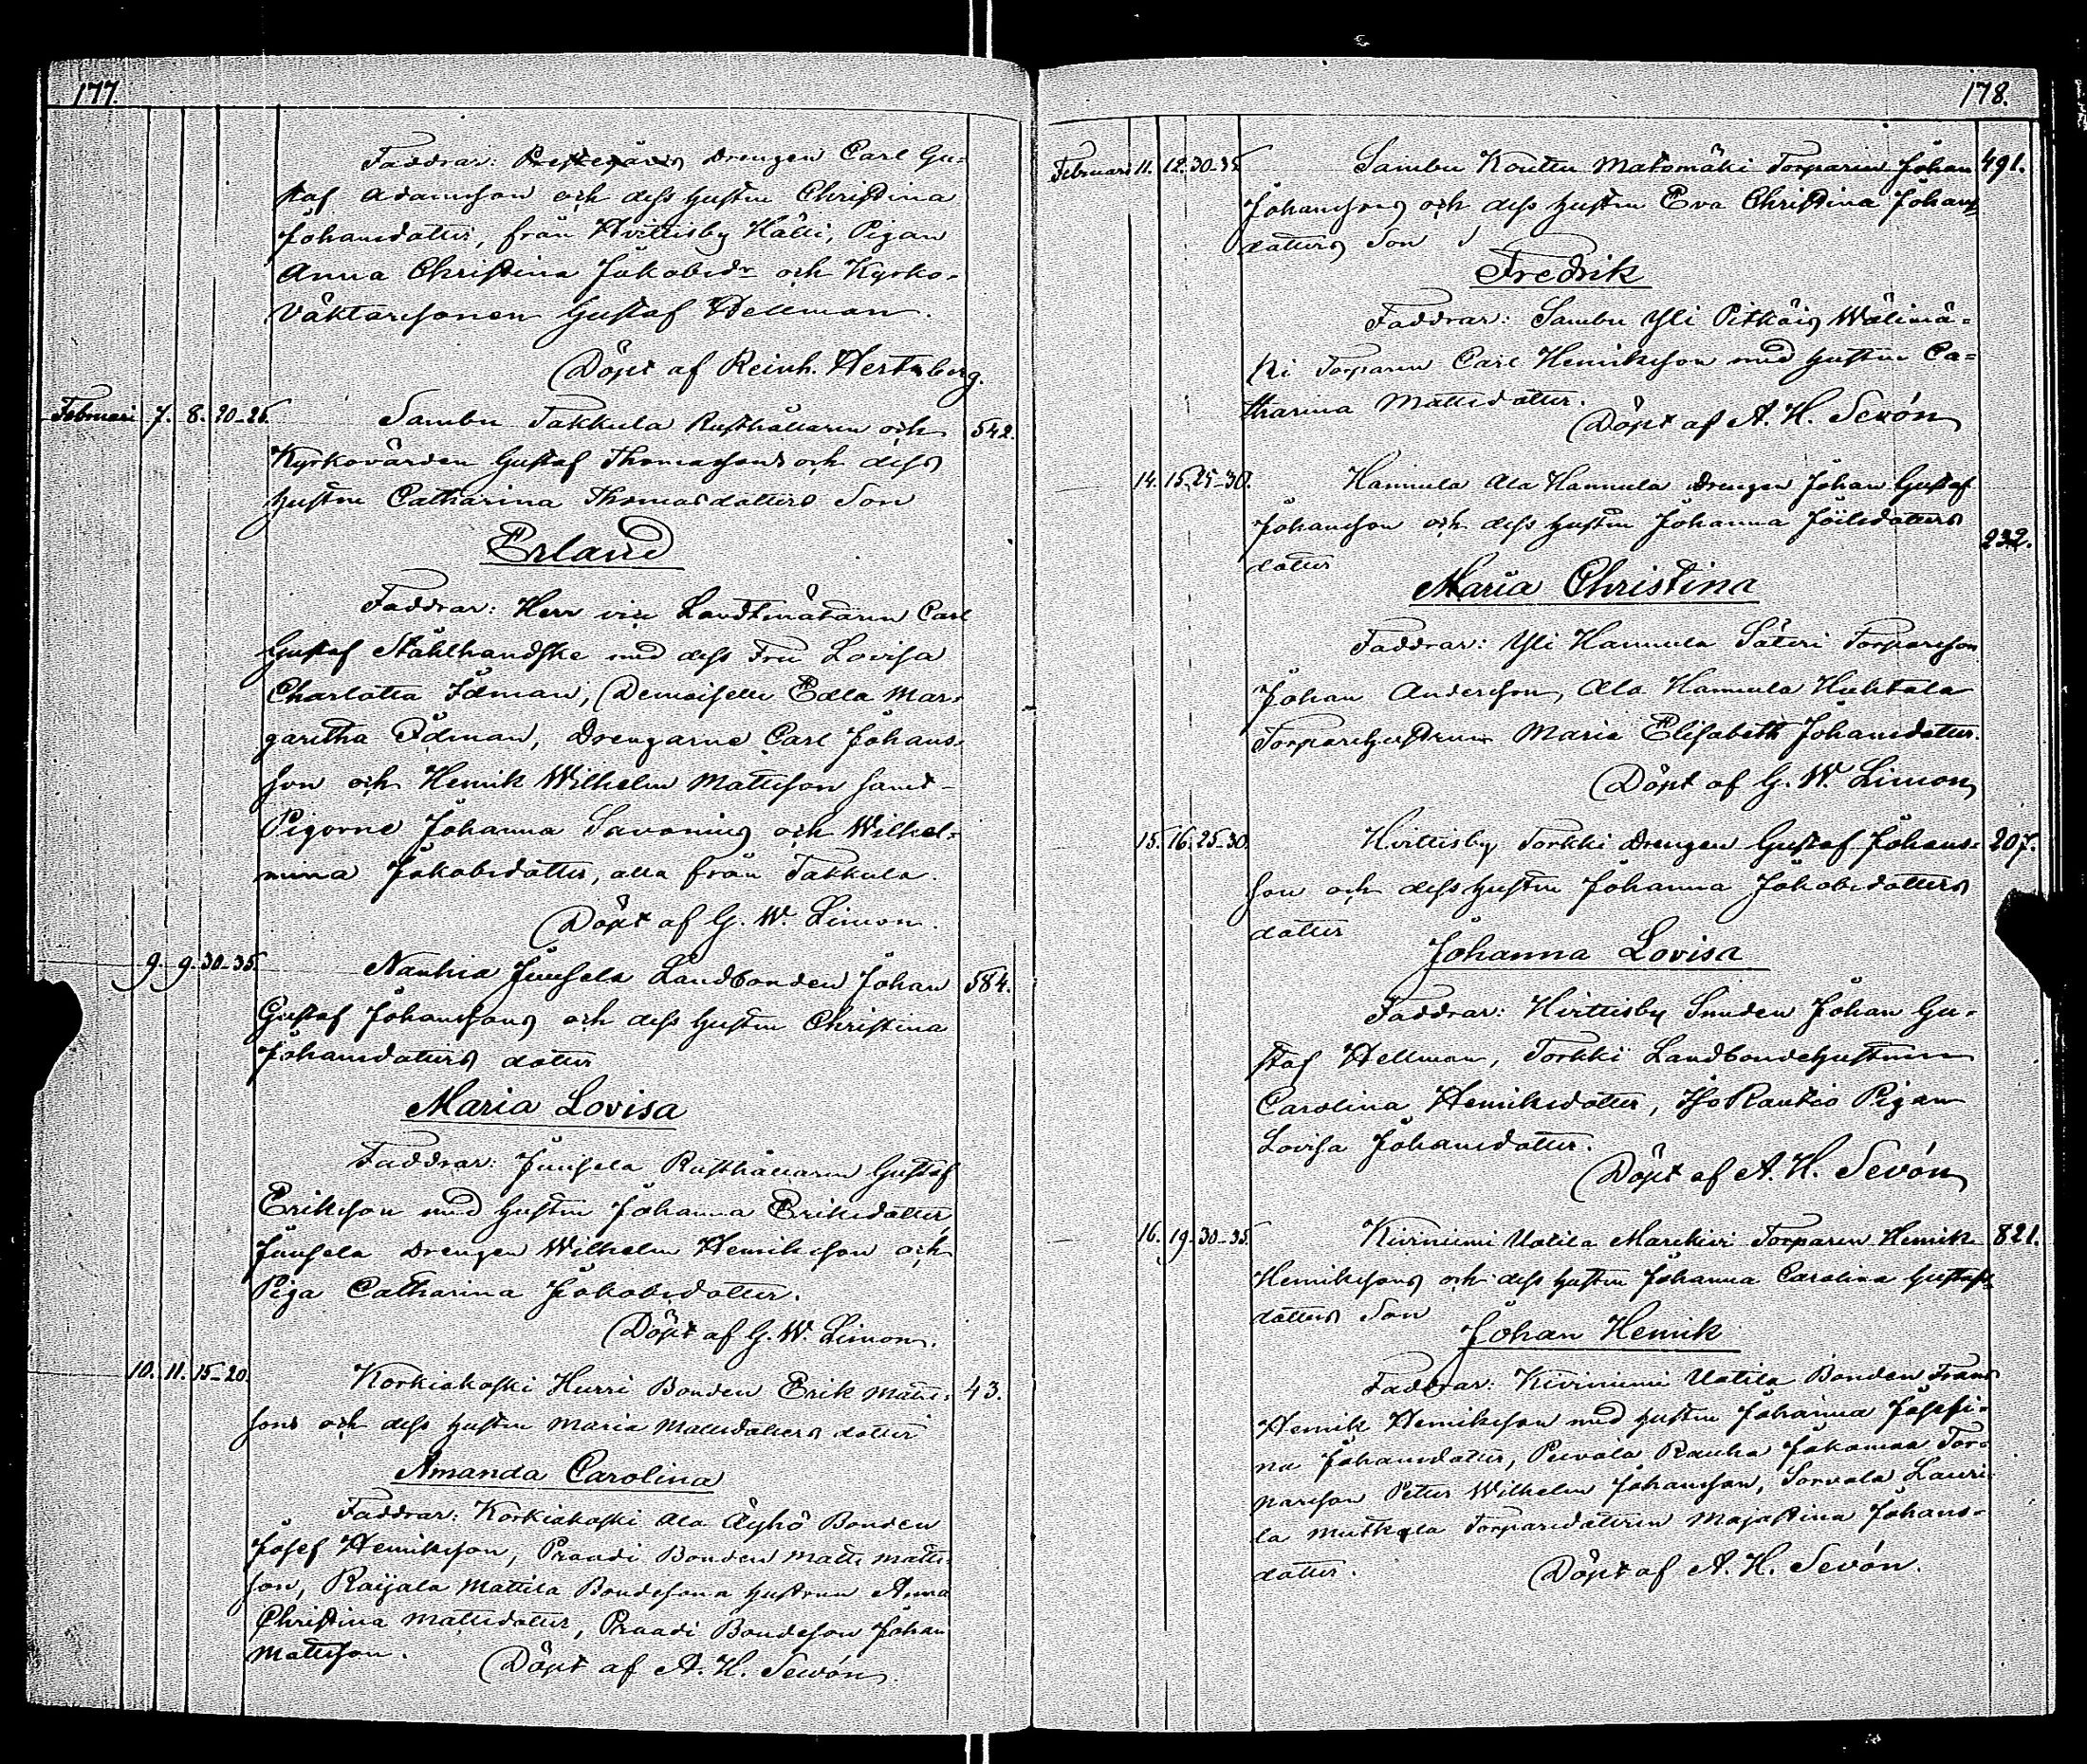 177.
Faddrar: Prestegårds Drengen Carl Gu-
staf Adamsson och dess hustru Christina
Johansdotter, från Hvittisby Hälli, Pigan
Anna Christina Jakobsdr och Kyrko-
väktaresonen Gustaf Hellman.
Döpt af Reinh. Hertzberg.
Februari 7. 8. 20-25. Sambu Takkula Rusthållaren och 542.
Kyrkovärden Gustaf Thomassons och dess
hustru Catharina Thomasdotters Son
Erland
Faddrar: Herr vice Landtmätaren Carl
Gustaf Stålhandske med dess Fru Lovisa
Charlotta Idman, Demoiselle Edla Mar-
garetha Idman, Drengarne Carl Johans-
son och Henrik Wilhelm Mattsson samt
Pigorne Johanna Savonius och Wilhel-
mina Jakobsdotter, alla från Takkula.
Döpt af G. W. Limon.
9. 9. 30-35. Nanhia Juusela Landbonden Johan 584.
Gustaf Johanssons och dess hustru Christina
Johansdotters dotter
Maria Lovisa
Faddrar: Juusela Rusthållaren Gustaf
Eriksson med hustru Johanna Eriksdotter,
Juusela Drengen Wilhelm Henriksson och
Piga Catharina Jakobsdotter.
Döpt af G. W. Limon.
10. 11. 15-20. Korkiakoski Hurri Bonden Erik Matts- 43.
sons och dess hustru Maria Mattsdotters dotter
Amanda Carolina
Faddrar: Korkiakoski Ala Äyhö Bonden
Josef Henriksson, Praadi Bonden Matts Matts-
son, Raijala Mattila Bondesona hustrun Anna
Christina Mattsdotter, Praadi Bondeson Johan
Mattsson. Döpt af A. H. Sevón.
178.
Februari 11. 12. 30-35. Sambu Kouttu Matomäki Torparen Johan 491.
Johanssons och dess hustru Eva Christina Johans-
dotters Son
Fredrik
Faddrar: Sambu Yli Pitkäis Wälimä-
ki Torparen Carl Henriksson med hustru Ca-
tharina Mattsdotter.
Döpt af A. H. Sevón
14. 15. 25-30. Hannula Ala Hannula Drengen Johan Gustaf
Johansson och dess hustru Johanna Joilsdotters 232.
dotter
Maria Christina
Faddrar: Yli Hannula Säteri Torpareson
Johan Andersson, Ala Hannula Huhtala
Torparehustrun Maria Elisabeth Johansdotter.
Döpt af G. W. Limon
15. 16. 25-30. Hvittisby Torkki Drengen Gustaf Johans- 207.
son och dess hustru Johanna Jakobsdotters
dotter
Johanna Lovisa
Faddrar: Hvittisby Smeden Johan Gu-
staf Hellman, Torkki Landbondehustrun
Carolina Henriksdotter, Iso Rautio Pigan
Lovisa Johansdotter.
Döpt af A. H. Sevón
16. 19. 30-35. Kiviniemi Uotila Torparen Henrik 821.
Henrikssons och dess hustru Johanna Carolina Gustafs-
dotters Son
Johan Henrik
Faddrar: Kiviniemi Uotila Bonden Frans
Henrik Henriksson med hustru Johanna Josefi-
na Johansdotter, Peivola Rauha Tor-
pareson Petter Wilhelm Johansson, Sorvola Lauri-
la Torparedottren Majastina Johans-
dotter. Döpt af A. H. Sevón.